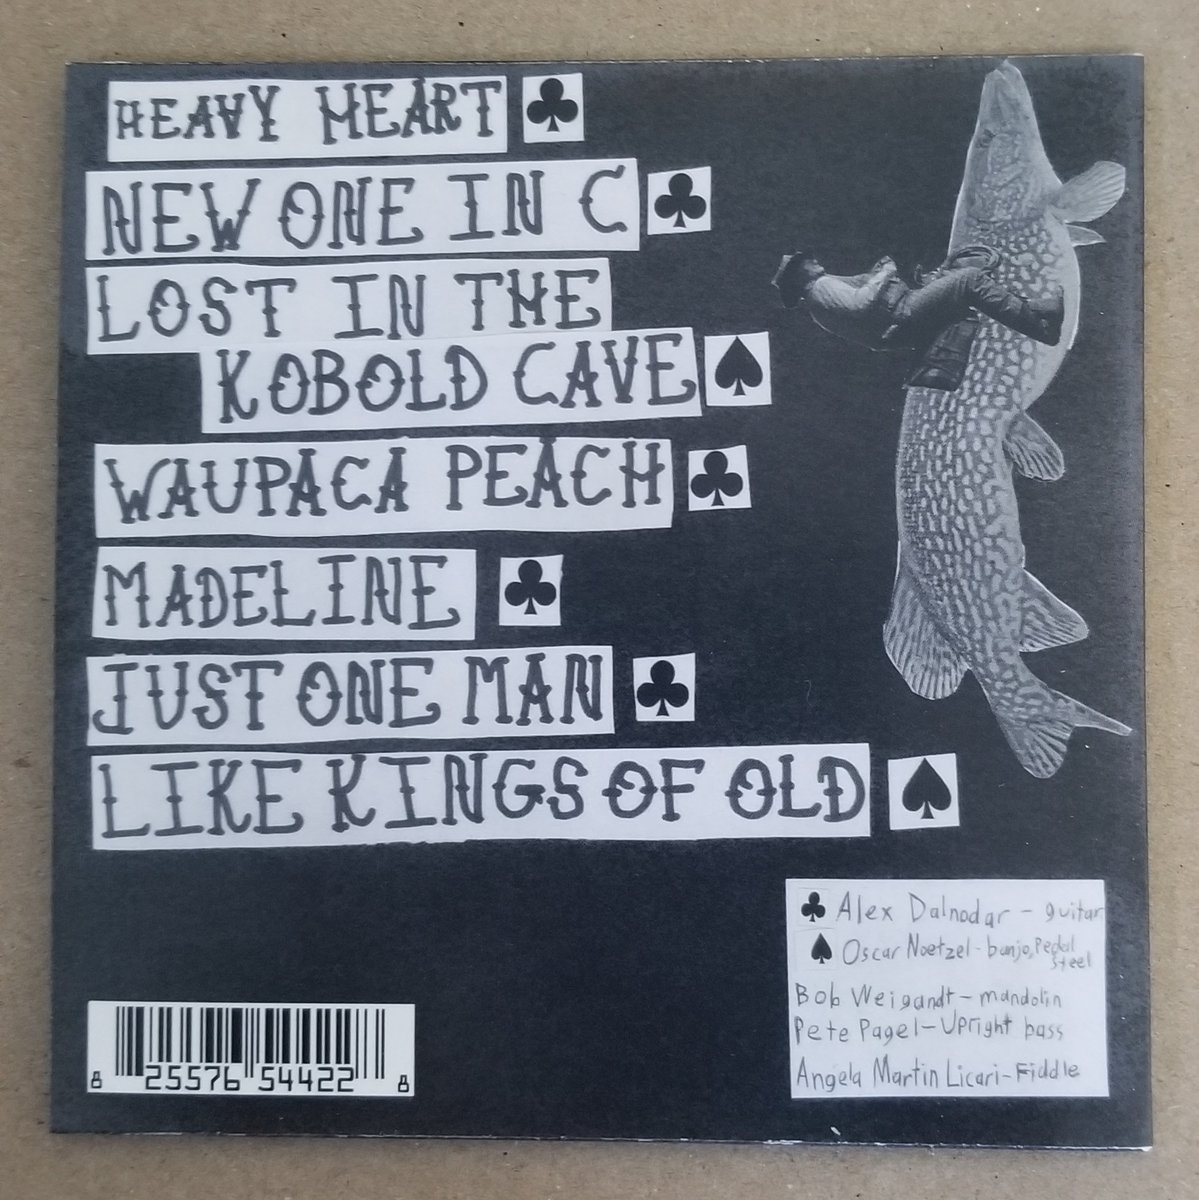 HEAVY HEART ♣
NEW ONE IN C ♣
LOST IN THE
KOBOLD CAVE ♠
WAUPACA PEACH ♣
MADELINE ♣
JUST ONE MAN ♣
LIKE KINGS OF OLD ♠
♣ Alex Dalnodar - guitar
♠ Oscar Noetzel - banjo, Pedal
steel
Bob Weigandt - mandolin
Pete Pagel - Upright bass
Angela Martin Licari - Fiddle
8 25576 54422 8